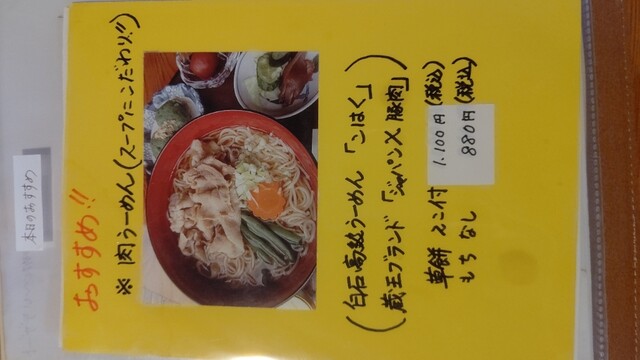 本日のおすすめ
おすすめ!!
※ 肉うーめん(スープにこだわり!!)
(白石高級うーめん「こはく」)
(蔵王ブランド「ジャパンX 豚肉」
草餅 2こ付 1.100円(税込)
もち なし 880円(税込)